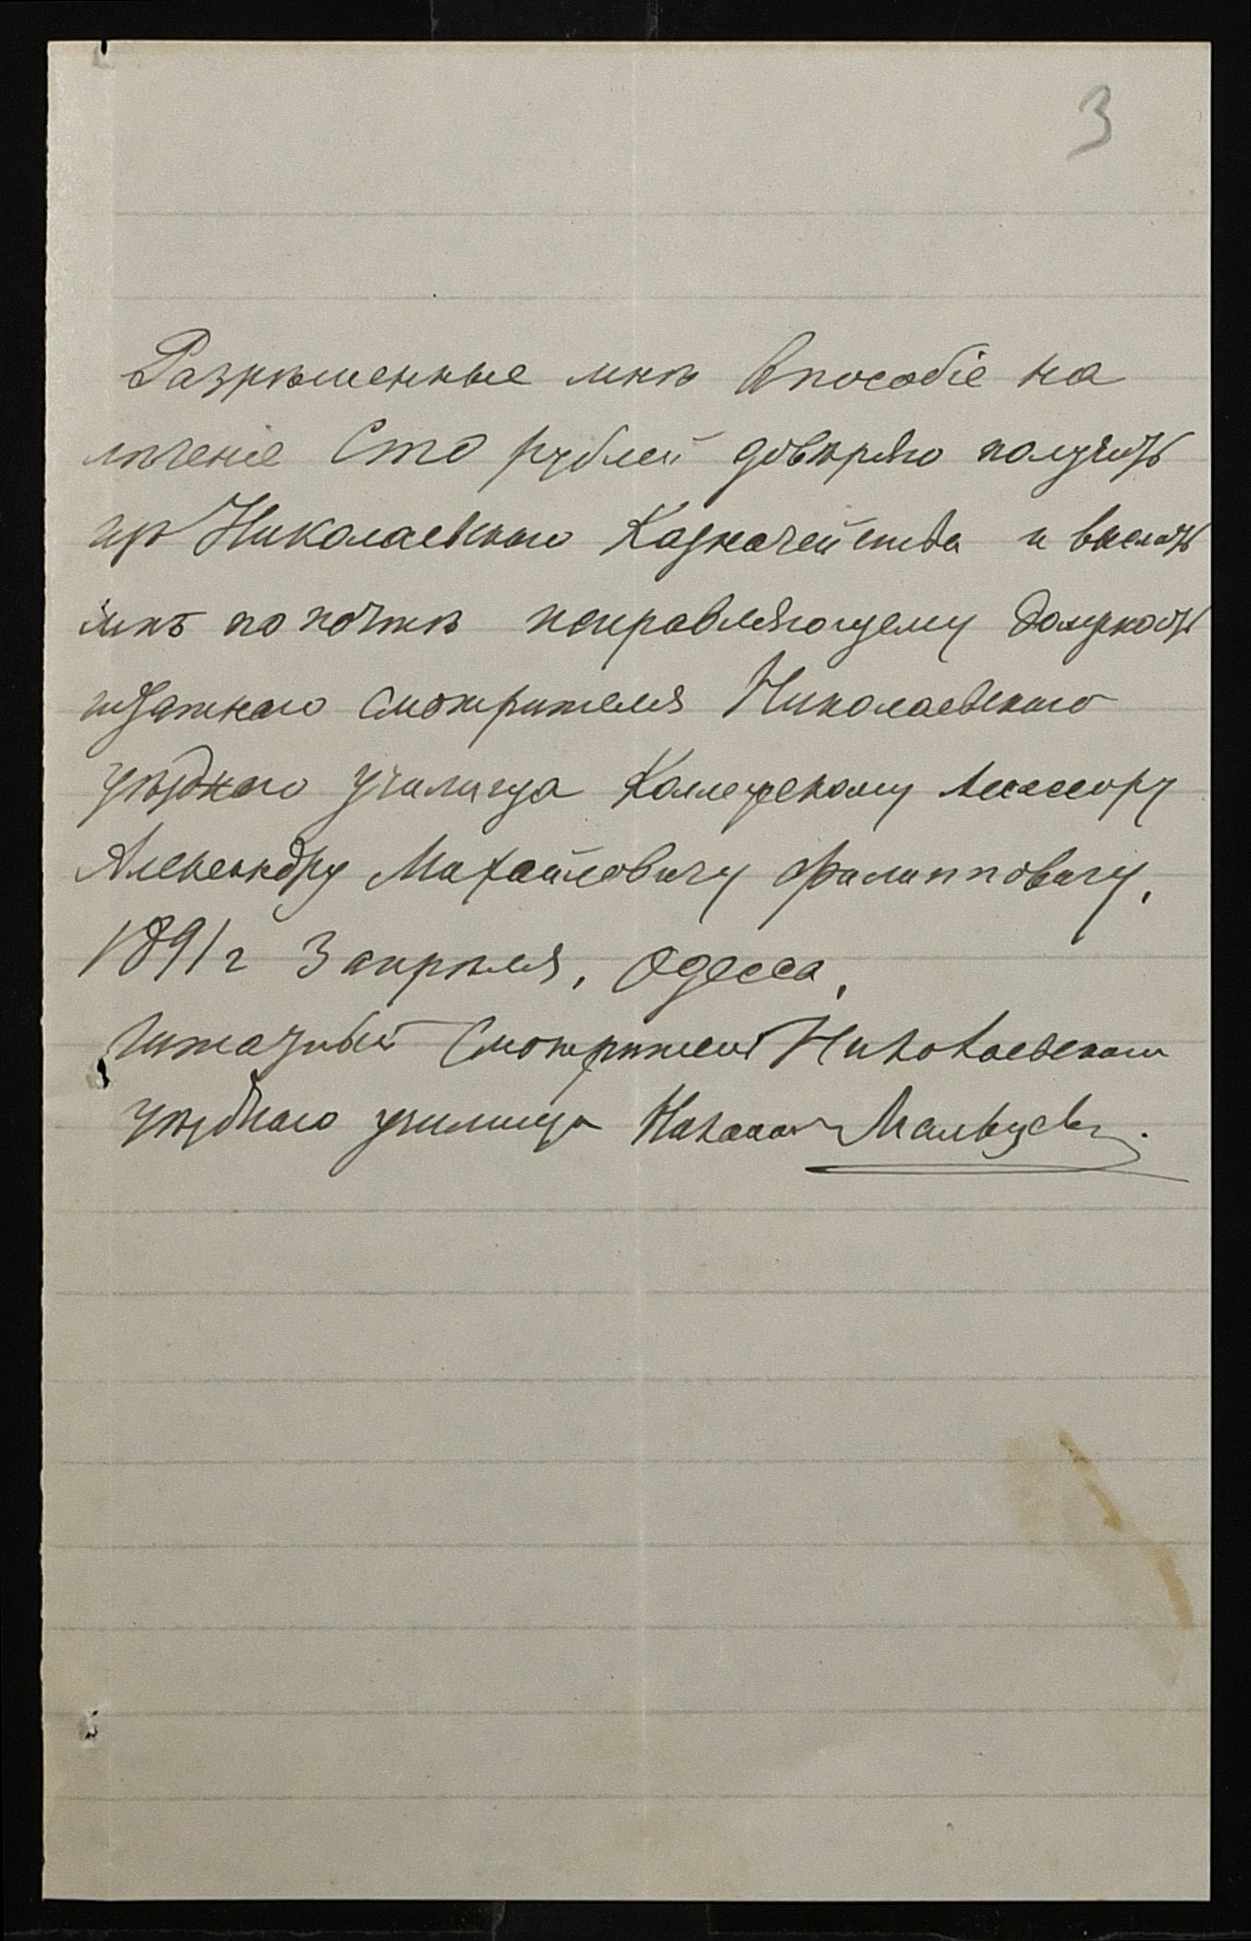 3
Разрѣшенные мнѣ впособіе на
лѣченіе Сто рублей довѣряю получить
изъ Николаевскаго Казначейства и выслать
мнѣ по почтѣ исправляющему должность
штатнаго смотрителя Николаевскаго
уѣзднаго училища Коллежскому Ассесору
Александру Михайловичу Филипповичу.
1891 г 3 апрѣля, Одесса,
Штатный Смотритель Николаевскаго
уѣзднаго училища Мальцевъ.